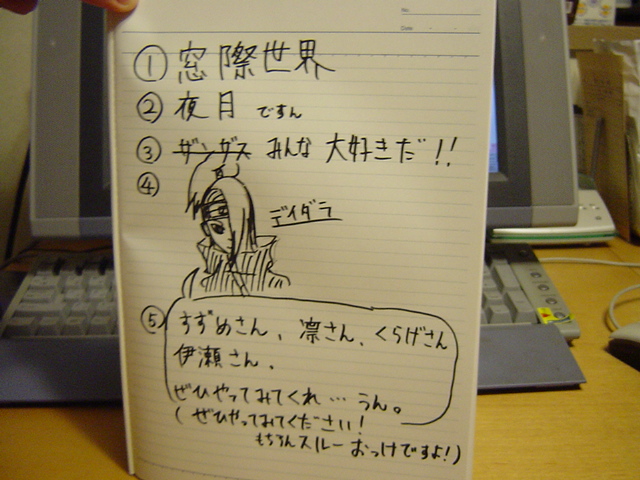 No.
Date
① 窓際世界
② 夜月 ですん
③ ザンザス みんな 大好きだ!!
④
デイダラ
⑤ すずめさん、凛さん、くらげさん
伊瀬さん。
ぜひやってみてくれ…うん。
(ぜひやってみてください!
もちろんスルーおっけですよ!)